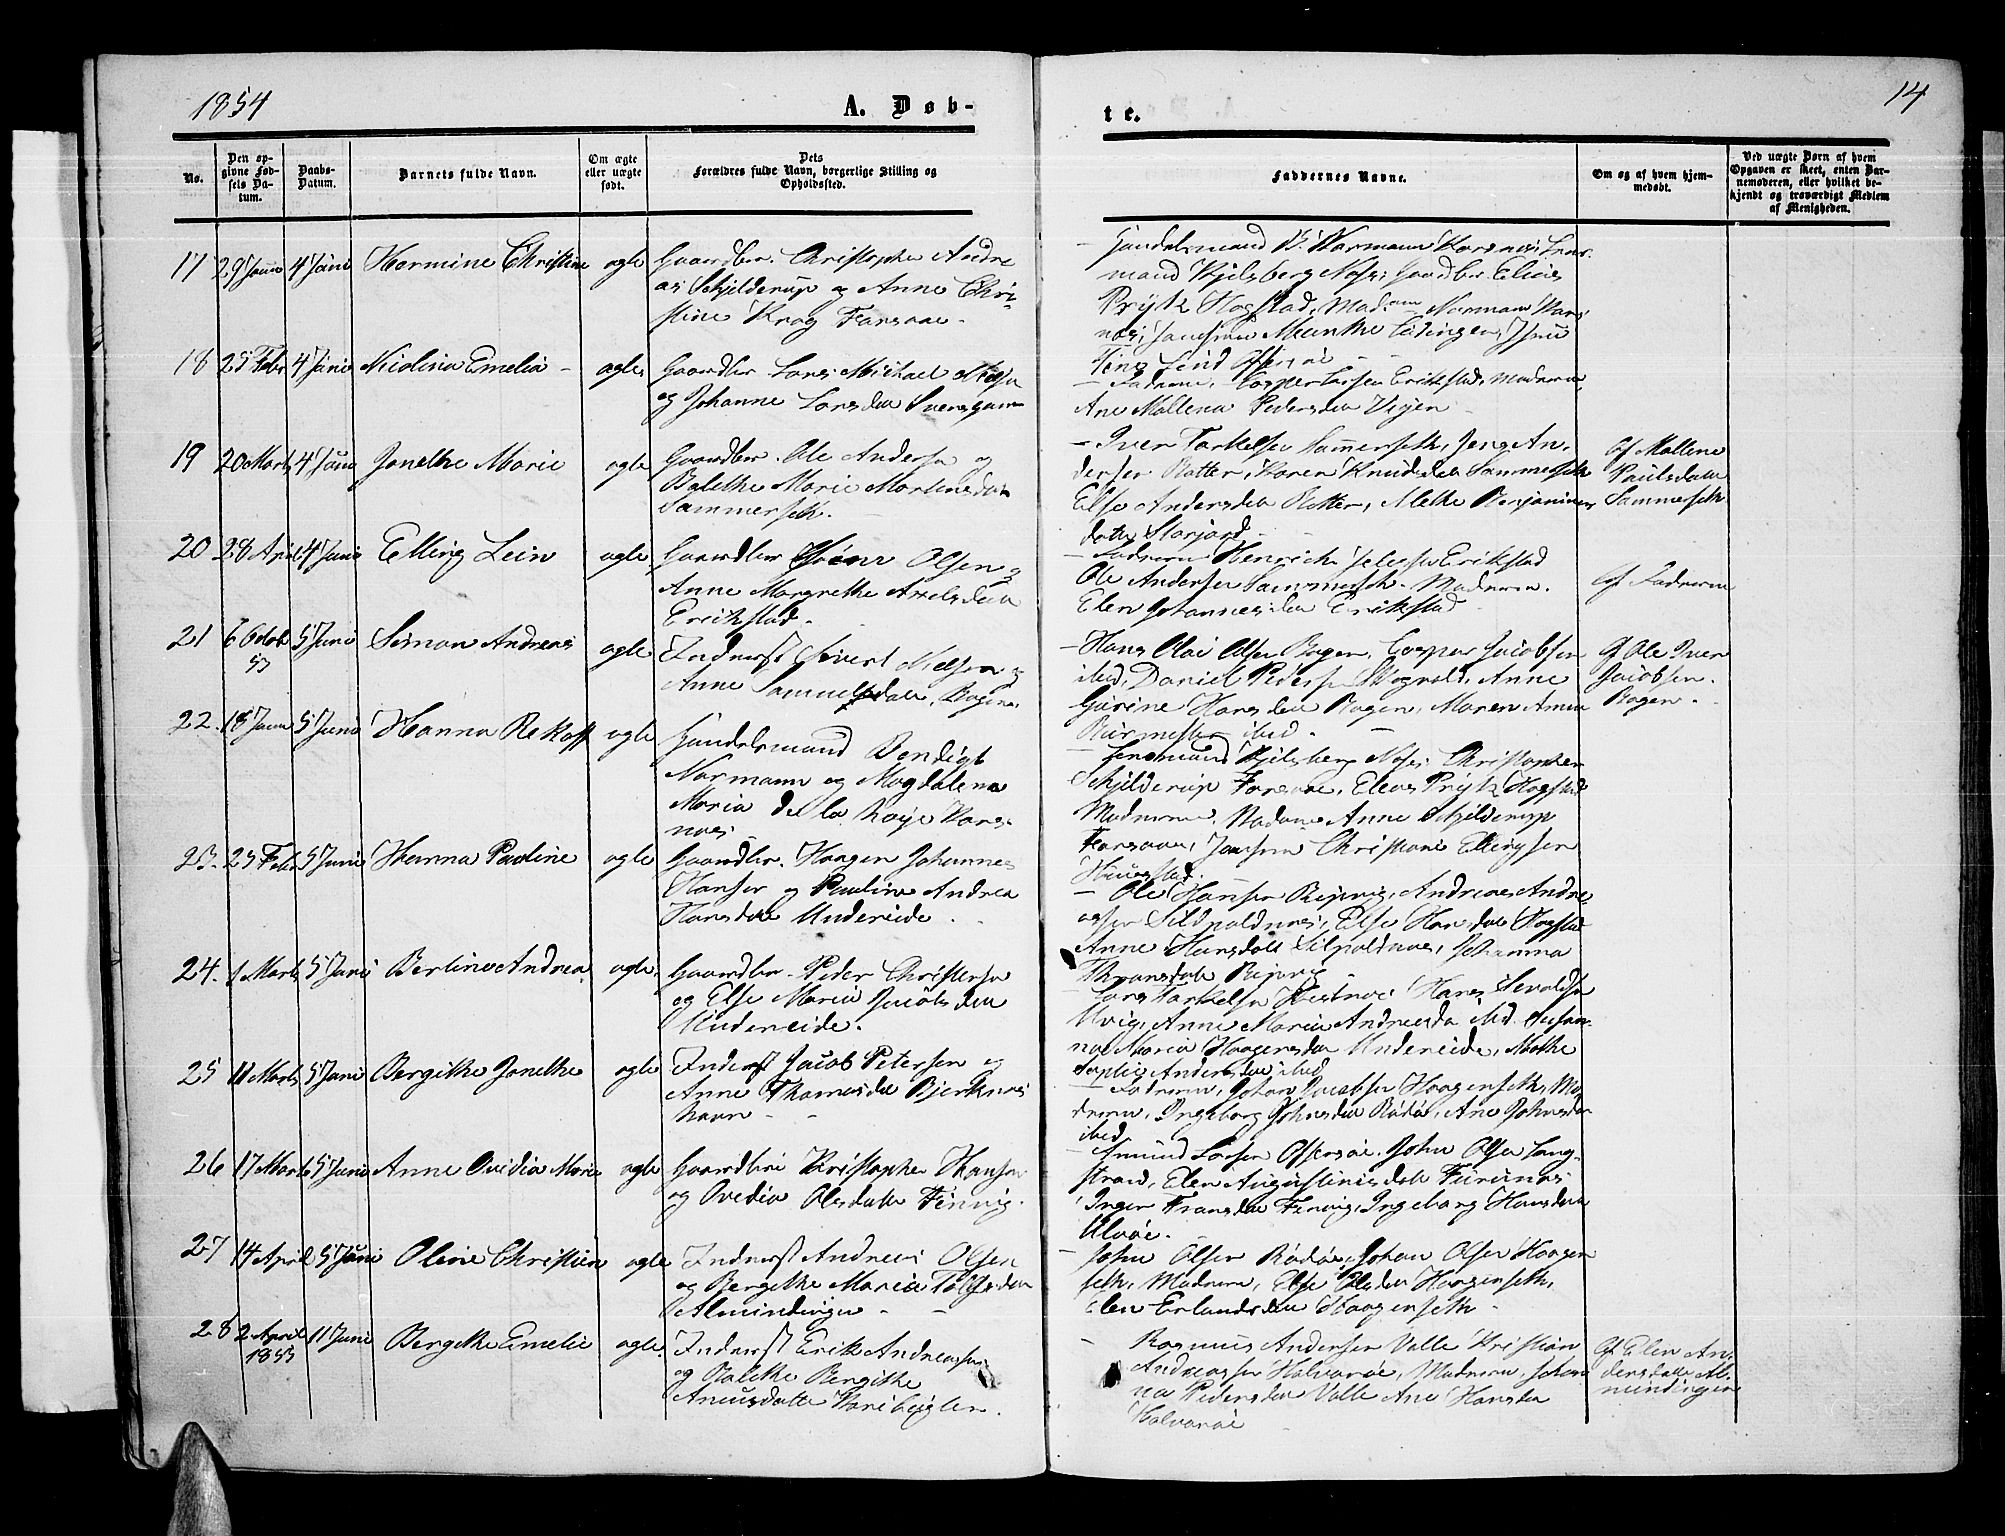 1854
A. Døb-
te.
14
No.
Den op-
givne Fød-
sels Da-
tum.
Daabs-
Datum.
Barnets fulde Navn.
Om ægte
eller uægte
født.
Dets
Forældres fulde Navn, borgerlige Stilling og
Opholdssted.
Faddernes Navne.
Om og af hvem hjem-
medøbt.
Ved uægte Børn af hvem
Opgaven er skeet, enten Bar-
nemoderen, eller hvilket be-
kjendt og troværdigt Medlem
af Menigheden.
17 29 Janu 4 Juni Hermine Christine ægte Gaardbr. Christopher Andre
as Schjelderup og Anne Chri-
stine Krog Forsaae.
Handelsmand B. Normann Korsnæs, Lens-
mand Kjelsberg Næss, Gaardbr. Elias
Prytz Hogstad, Madam Normann Kors
næs, Jomfru Munthe Lødingen,
18 25 Febr 4 Juni Nicolina Emelia ægte Gaardbr Lars Michael
og Johanne Larsdtr
Faderen, Casper Larsen Erikstad, Moderen
Ane Mallena Pedersdtr
19 20 Marts 4 Juni Jonethe Marie ægte Gaardbr. Ole Andersen og
Balethe Marie Mortensdatr
Sommerseth.
Iver Torkelsen Sommerseth, Jens An-
dersen Rotter, Karen Knudsdtr Sommerseth
Else Andersdtr Rotter, Alethe Benjamins
datter Storjord
Af Mallene
Paulsdatter
Sommerseth
20 28 April 4 Juni Elling Lein ægte Gaardbr Olsen og
Anne Margrethe Axelsdatr
Erikstad.
Faderen Henrich Erikstad
Ole Andersen Sommerseth. Moderen.
Elen Johannesdtr Erikstad
Af Faderen
21 6 Octob
53 5 Juni Simon Andreas ægte Inderst Sivert Nielsen og
Anne Samuelsdatr, Bogen.
Hans Olai Olsen Bogen, Casper Jacobsen
ibid, Daniel Pedersen Skogvold, Anne
Gurine Hansdtr Bogen, Maren Anna
ibid.
Af Ole Iver
Jacobsen.
Bogen.
22. 18 Janu 5 Juni Hanna Rekoff ægte Handelsmand Bendigt
Normann og Magdalena
Maria de la Kors-
næs
Lensmand Kjelsberg Næss, Christopher
Schjelderup Forsaae, Elias Prytz Hogstad
Moderen, Madam Anne Schjelderup
Forsaae, Jomfru Christiane Ellingsen
23. 23 Febr 5 Juni Hanna Pauline ægte Gaardbr. Haagen Johannes
Hansen og Pauline Andrea
Hansdtr Undereide.
Ole Hansen Ripvig, Andreas Andre-
assen Sildpoldnes, Else Hansdtr Hogstad
Anne Hansdatr Silpoldnæs, Johanna
Ripvig
24. 1 Marts 5 Juni Berline Andrea ægte Gaardbr. Peder Christensen
og Else Maria Jacobsdtr
Undereide.
Lars Torkelsen Hestnæs Hans Sevaldsen
Ulvig, Anne Maria Andreasdtr ibid. Susan-
na Maria Haagensdtr Undereide, Mathe
Sophie Andersdtr ibid
25 11 Marts 5 Juni Bergithe Jonethe ægte Inderst Jacob Petersen og
Anne Thomasdtr Bjerknæs
havn
Faderen, Johan Jacobsen Haagenseth, Mo
deren, Ingeborg Johnsdtr Rødøe, Ane Johnsdtr
ibid
26 17 Marts 5 Juni Anne Ovidia Maria ægte Gaardbr Kristopher Hansen
og Ovedia Olsdatr Finvig.
Amund Larsen Offersøe, John Olsen Lang-
strand, Elen Augustinusdtr Furunæs
Inger Fransdtr Finvig, Ingeborg Hansdtr
Ulvøe.
27 14 April 5 Juni Oline Christine ægte Inderst Andreas Olsen
og Bergithe Maria Tollefsdtr
Almindingen
John Olsen Rødøe, Johan Olsen Haagen
seth, Moderen, Else Elisdtr Haagenseth,
Elen Erlandsdtr Haagenseth
28 2 April
1853 11 Juni Bergithe Emelie ægte. Inderst Erik Andreassen
og Balethe Bergithe
Amundsdatter
Rasmus Andersen Valle Kristian
Andreassen Halvarøe, Moderen, Johan
na Pedersdtr Valle Ane Hansdtr
Halvarøe
Af Elen An-
dersdatter Al-
mindingen